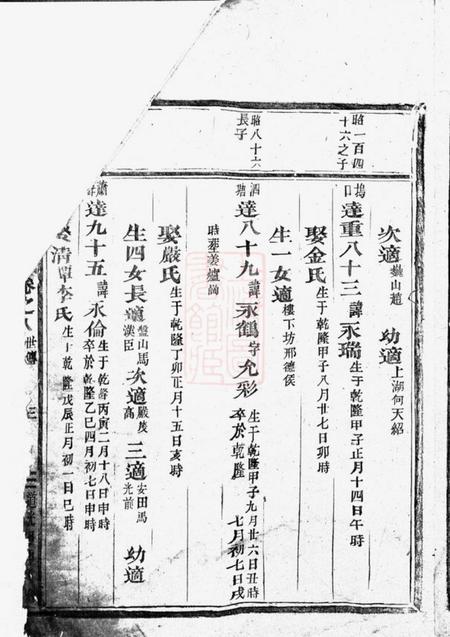 次適蕪山趙 幼適上湖何天紹
昭一百四十六之子
塢口
達重八十三諱永瑞生于乾隆甲子正月十四日午時
娶金氏生于乾隆甲子八月廿七日卯時
生一女適樓下坊邢德侯
昭八十六長子
泗塘
達八十九諱永鶴字允彩生于乾隆甲子九月廿六日丑時卒於乾隆 七月初七日戌
時葬美爐崗
娶嚴氏生于乾隆丁卯正月十五日亥時
生四女長適盤山馬漢臣 次適嚴茂高 三適安田馬光前 幼適
達九十五諱永倫生于乾隆丙寅二月十八日申時卒於乾隆乙巳四月初七日申時
清潭李氏生于乾隆戊辰正月初一日巳時
卷之八 世傳 三